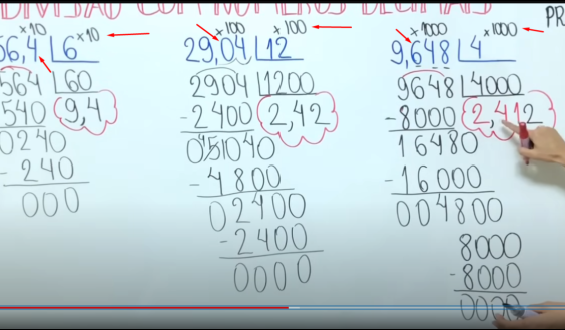 DIVISÃO COM NÚMEROS DECIMAIS
PR
×10 ×10
56,4 6
564 60
540 9,4
0240
- 240
000
×100 ×100
29,04 12
2904 1200
- 2400 2,42
051040
- 4800
02400
- 2400
0000
×1000 ×1000
9,648 4
9648 4000
- 8000 2,412
16480
- 16000
004800
8000
- 8000
0000